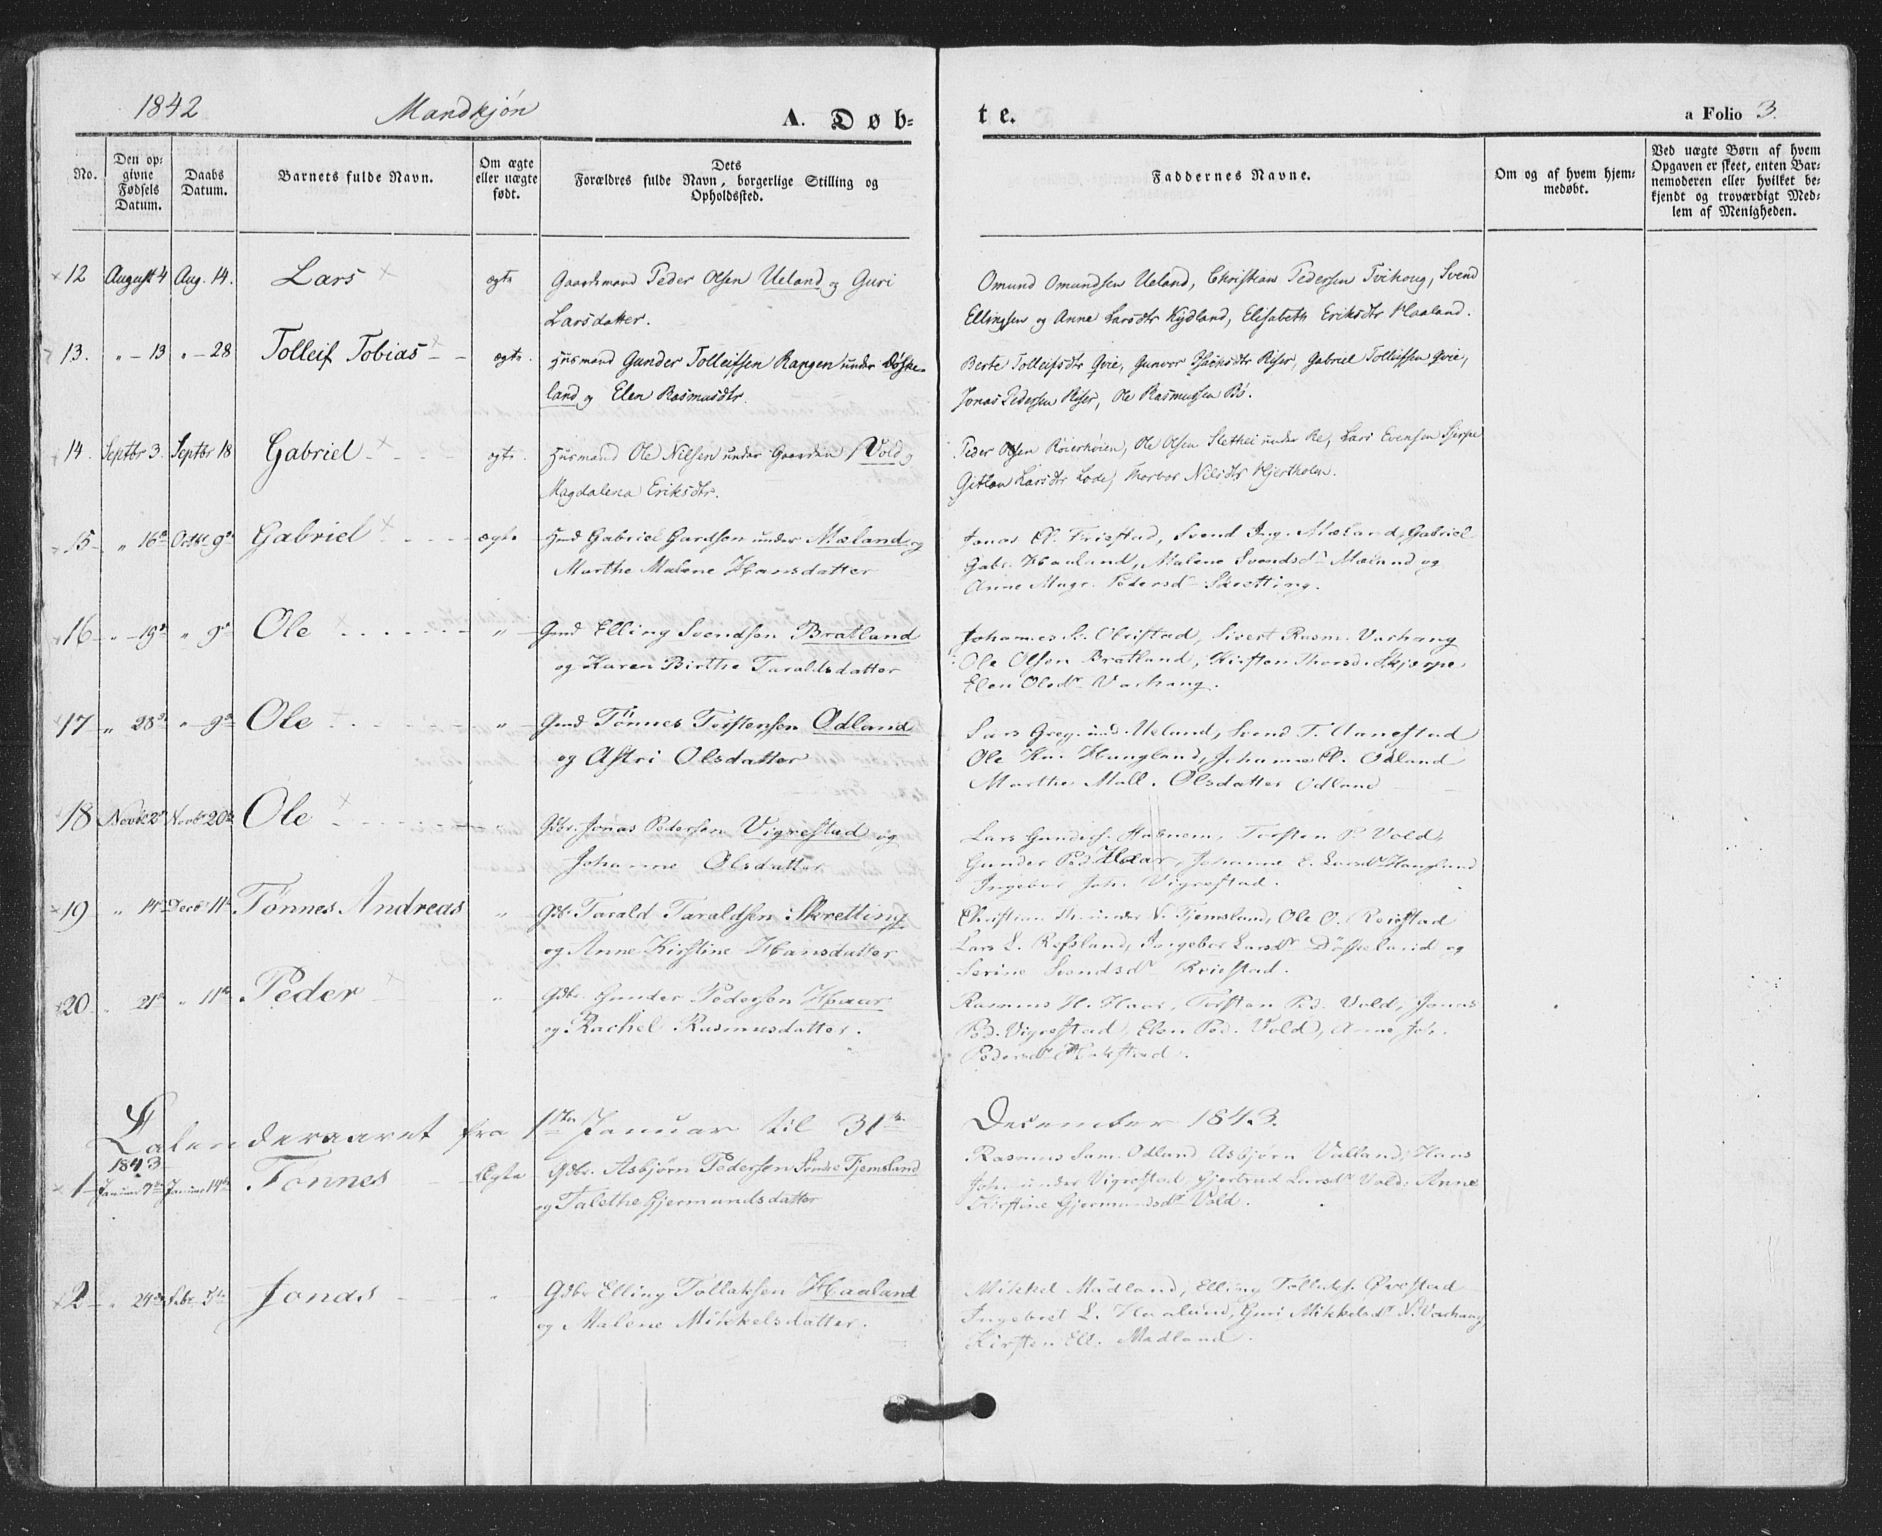 1842 Mandkjøn A. Døb-
te. a Folio 3.
No.
Den op-
givne
Fødsels
Datum.
Daabs
Datum.
Barnets fulde Navn.
Om ægte
eller uægte
født.
Dets
Forældres fulde Navn, borgerlige Stilling og
Opholdssted.
Faddernes Navne.
Om og af hvem hjem-
medøbt.
Ved uægte Børn af hvem
Opgaven er skeet, enten Bar-
nemoderen eller hvilket be-
kjendt og troværdigt Med-
lem af Menigheden.
12 August 4 Aug. 14. Lars ægte Gaardmand Peder Olsen Ueland og Guri
Larsdatter.
Omund Omundsen Ueland, Christian Pedersen Tvihoug, Svend
Ellingsen og Anne Larsdtr Kydland, Elisabeth Eriksdtr Haaland.
13. " - 13 " - 28 Tolleif Tobias ægte. Husmand Gunder Tolleifssen Rangen under Døske-
land og Elen Rasmusdtr.
Berte Tolleifsdtr Qvie, Gunvor Isaksdtr Riser, Gabriel Tolleifssen Qvie,
Jonas Pedersen Riser, Ole Rasmussen Bø.
14. Septbr 3. Septbr 18 Gabriel ægte. Husmand Ole Nilsen under Gaarden Vold og
Magdalena Eriksdtr.
Peder Olsen Røierhøien, Ole Olsen Slethei under Re, Lars Evensen Skjerpe
Larsdtr Lode, Nilsdtr Hjertholen.
15 " 16de Octbr 9de Gabriel ægte Hmd Gabriel Gardsen under Mæland og
Marthe Malene Hansdatter
Jonas P. Friestad, Svend Ing. Mæland, Gabriel
Gabr. Haaland, Malene Svendsdr Mæland og
Anne Magr. Pedersd Skretting.
16 " - 19de " 9de Ole " Gmd Elling Svendsen Bratland
og Karen Birthe Taraldsdatter
Johannes S. Obristad, Sivert Rasm. Varhaug
Ole Olsen Bratland, Kirsten Thorsd. Skjerpe
Elen Olsdr Varhaug.
17 " 28de " 9de Ole " Gmd Tønnes Torstensen Odland
og Astri Olsdatter
Lars Greg. und. Ueland, Svend T. Aanestad
Ole Kn. Haugland, Johanne P. Odland
Marthe Mall. Olsdatter Odland
18 Novbr 2de Novbr 20de Ole Gdbr. Jonas Pedersen Vigrestad og
Johanne Olsdatter
Lars Gunders. Torsten P. Vold,
Gunder Ped. Haar, Johanne E. Larsdr Haugland
Ingebor Joh. Vigrestad.
19 " 14de Decbr 11te Tønnes Andreas " Gdbr Tarald Taraldsen Skretting
og Anne Kirstine Hansdatter
Christian under N. Tjemsland, Ole O. Reiestad
Lars L. Refsland, Ingebor Larsdr Døskeland og
Serine Svendsdr
20 " 21de " 11te Peder " Gdbr. Gunder Pedersen Haar
og Rachel Rasmusdatter.
Rasmus H. Haar, Torsten Pd. Vold, Jonas
Pd. Vigrestad, Elen Pd. Vold, Anne Joh.
Pedersdr
Kalenderaaret fra 1ste Januar til 31te December 1843.
1843
1 Januar 7de Januar 14de Tønnes Ægte Gdbr. Asbjørn Pedersen Søndre Tjemsland
og Talethe Gjermundsdatter
Rasmus Sam. Odland Asbjørn Valland, Hans
Joh. under Vigrestad, Gjertrud Larsdr Vold, Anne
Kirstine Gjermundsdr Vold.
2 " 24de Febr 5te Jonas " Gdbr Elling Tollaksen Haaland
og Malene Mikkelsdatter.
Mikkel Madland, Elling Tollaks. Ovestad
Ingebret L. Haaland, Guri Mikkelsdr N. Varhaug,
Kirsten Ell. Madland.